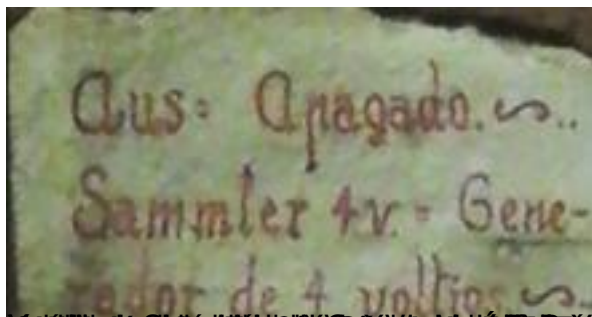 Aus= Apagado. ~..
Sammler 4v.= Gene-
rador de 4 voltios ~.